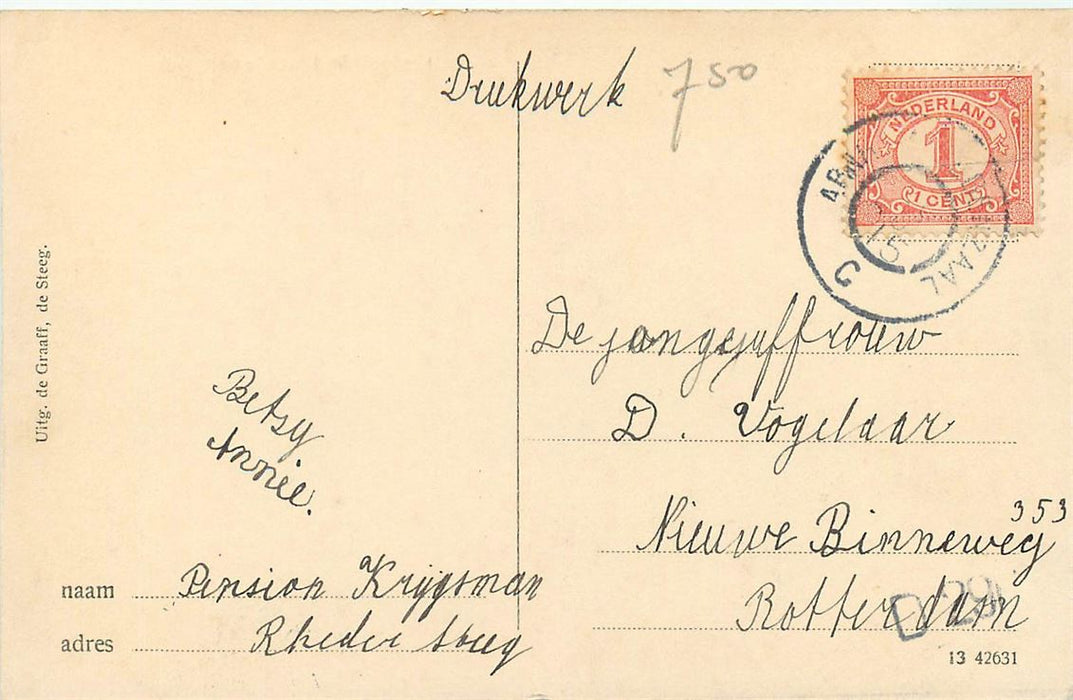 Drukwerk 750
NEDERLAND
1
1 CENT
Uitg. de Graaff, de Steeg.
De jongejuffrouw
D. Vogelaar
Nieuwe Binneweg 353
Rotterdam
D 29
Betsy
Annie.
naam Pension Krygsman
adres Rheder steeg
13 42631